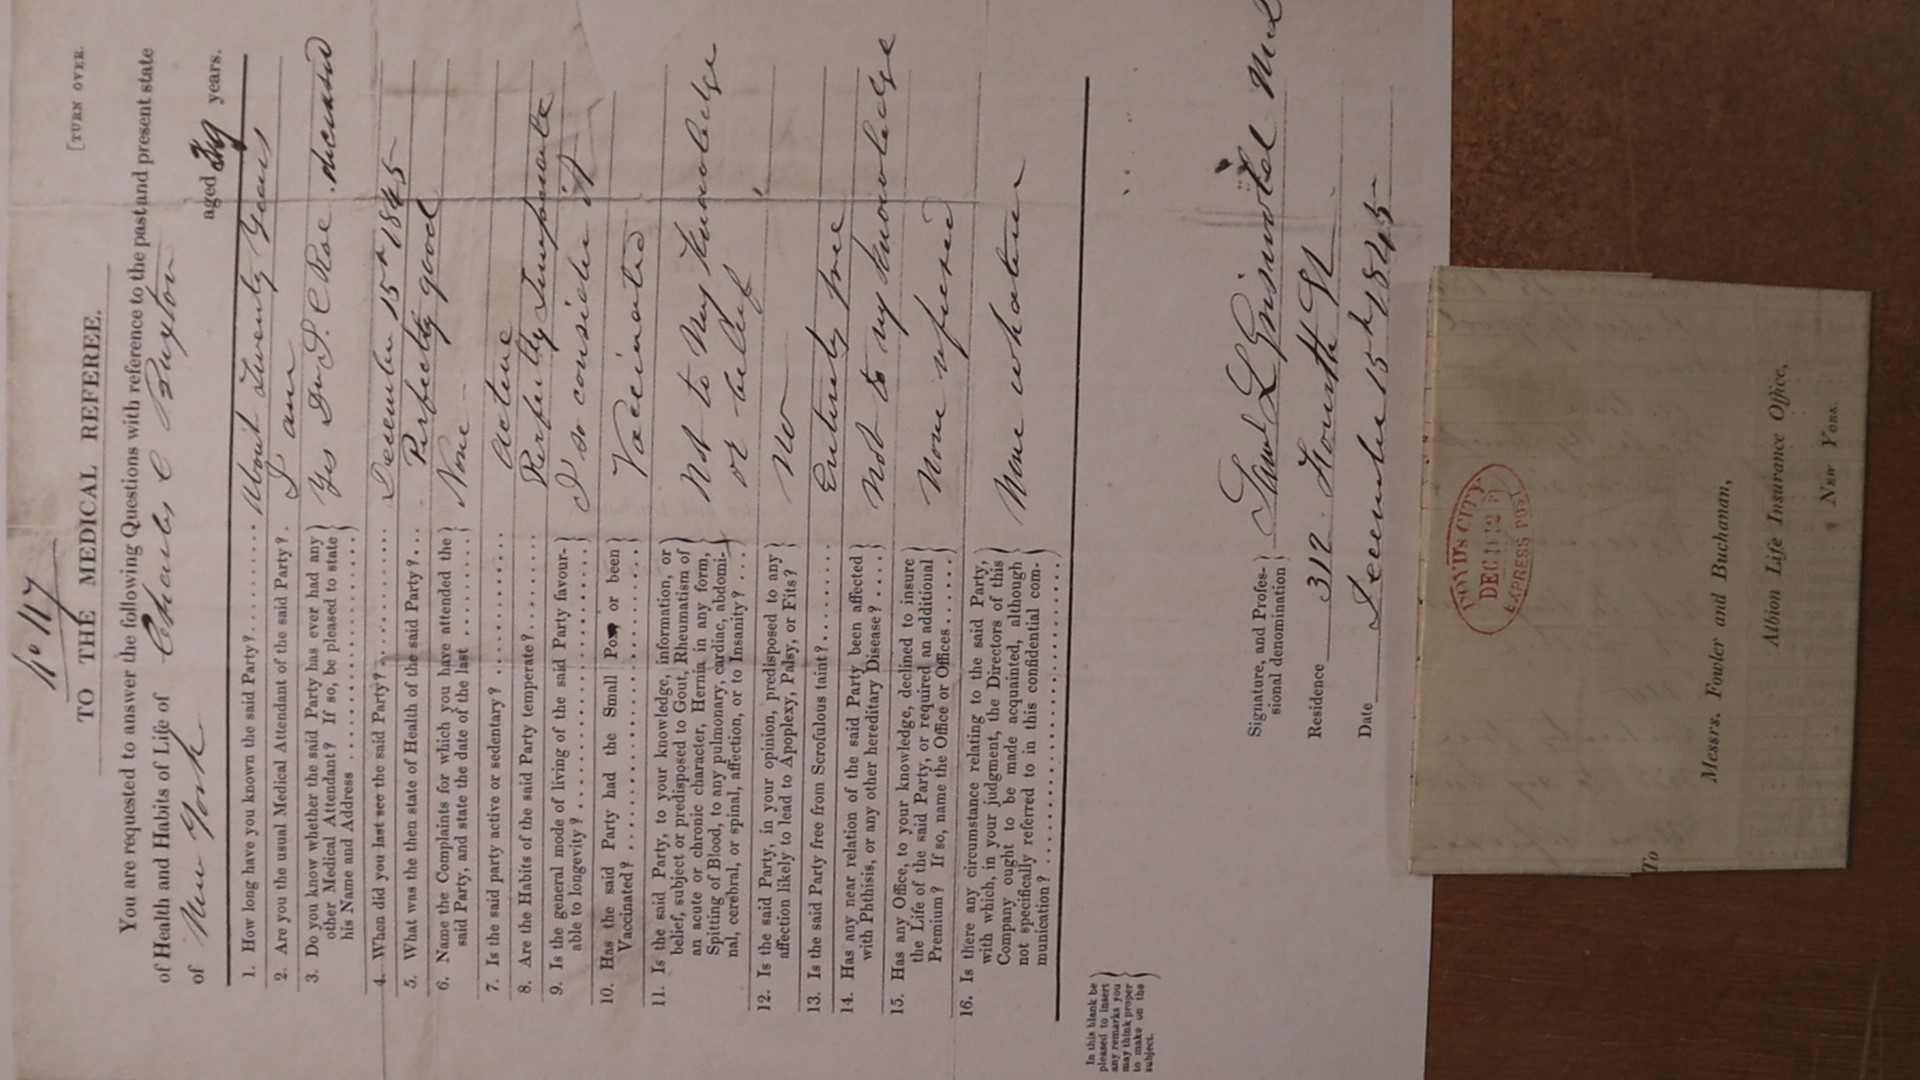 No 117
[TURN OVER.
TO THE MEDICAL REFEREE.
You are requested to answer the following Questions with reference to the past and present state
of Health and Habits of Life of Charles C Buxton
of New York aged 39 years.
1. How long have you known the said Party?.......... About Twenty Years
2. Are you the usual Medical Attendant of the said Party?. I am
3. Do you know whether the said Party has ever had any
other Medical Attendant? If so, be pleased to state
his Name and Address ................ Yes Dr Rose deceased
4. When did you last see the said Party?............ December 15th 1845
5. What was the then state of Health of the said Party?... Perfectly good
6. Name the Complaints for which you have attended the
said Party, and state the date of the last ........ None
7. Is the said party active or sedentary? .......... Active
8. Are the Habits of the said Party temperate?....... Perfectly Temperate
9. Is the general mode of living of the said Party favour-
able to longevity? ................ I so consider it
10. Has the said Party had the Small Pox, or been
Vaccinated? ................ Vaccinated
11. Is the said Party, to your knowledge, information, or
belief, subject or predisposed to Gout, Rheumatism of
an acute or chronic character, Hernia in any form,
Spitting of Blood, to any pulmonary, cardiac, abdomi-
nal, cerebral, or spinal, affection, or to Insanity? ...
Not to My Knowledge
or belief
12. Is the said Party, in your opinion, predisposed to any
affection likely to lead to Apoplexy, Palsy, or Fits? No
13. Is the said Party free from Scrofulous taint?....... Entirely free
14. Has any near relation of the said Party been affected
with Phthisis, or any other hereditary Disease? .... Not to my knowledge
15. Has any Office, to your knowledge, declined to insure
the Life of the said Party, or required an additional
Premium? If so, name the Office or Offices...... None refused
16. Is there any circumstance relating to the said Party,
with which, in your judgment, the Directors of this
Company ought to be made acquainted, although
not specifically referred to in this confidential com-
munication? ................ None whatever
In this blank be
pleased to insert
any remarks you
may think proper
to make on the
subject.
Signature, and Profes-
sional denomination L Griswold
Residence 312 Fourth St
Date December 15th 1845
BOYD'S CITY
DEC 16
EXPRESS POST
To
Messrs. Fowler and Buchanan,
Albion Life Insurance Office,
NEW YORK.